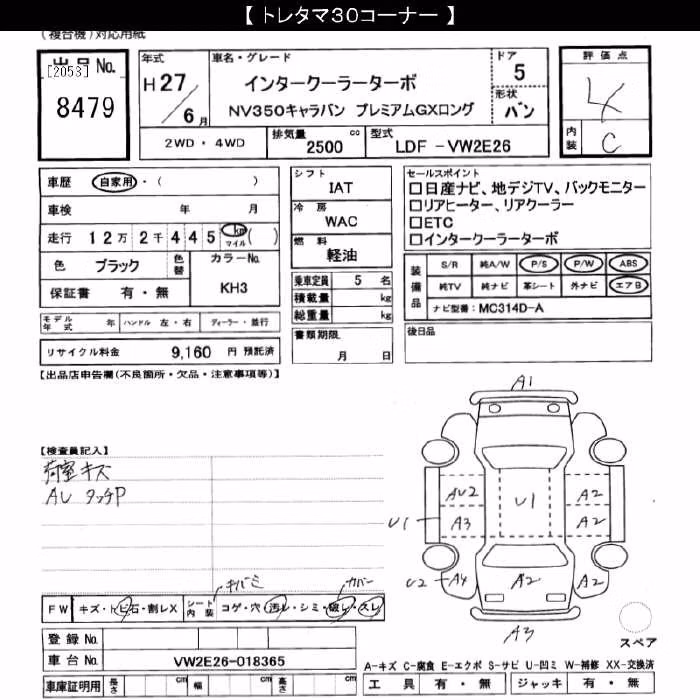 【 トレタマ30コーナー 】
(複合機)対応用紙
出品 No. [2053] 8479
年式 H27/6月
車名・グレード インタークーラーターボ
NV350キャラバン プレミアムGXロング
ドア 5
形状 バン
評価点 4
内装 C
2WD・4WD 排気量 2500 cc 型式 LDF -VW2E26
車歴 自家用・( )
車検 年 月
走行 12万 2千 445 km マイル ( )
色 ブラック 色替 カラーNo. KH3
保証書 有・無
モデル年式 年 ハンドル 左・右 ディーラー・並行
リサイクル料金 9,160 円 預託済
シフト IAT
冷房 WAC
燃料 軽油
乗車定員 5 名
積載量 kg
総重量 kg
書類期限 月 日
セールスポイント
□日産ナビ、地デジTV、バックモニター
□リアヒーター、リアクーラー
□ETC
□インタークーラーターボ
装備品 S/R 純A/W P/S P/W ABS
純TV 純ナビ 革シート 外ナビ エアB
ナビ型番: MC314D-A
後日品
【出品店申告欄(不良箇所・欠品・注意事項等)】
【検査員記入】
荷室キズ
AU タッチP
A1
AU2 U1 A2
U1 A3 A2
U2 A4 A2 A2
A3
スペア
キバミ カバー
FW キズ・トビ石・割レX シート内装 コゲ・穴・汚レ・シミ・破レ・スレ
登録 No.
車台 No. VW2E26-018365
車庫証明用 長さ cm 幅 cm 高さ cm
A-キズ C-腐食 E-エクボ S-サビ U-凹ミ W-補修 XX-交換済
工具 有・無 ジャッキ 有・無